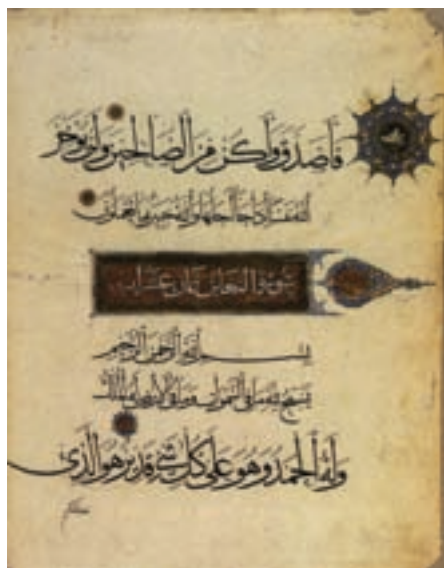 فأصدق وأكن من الصالحين ولن يؤخر
الله نفسا إذا جاء أجلها والله خبير بما تعملون
سورة التغابن ثمان عشرة آية
بسم الله الرحمن الرحيم
يسبح لله ما في السموات وما في الأرض له الملك
وله الحمد وهو على كل شيء قدير هو الذي